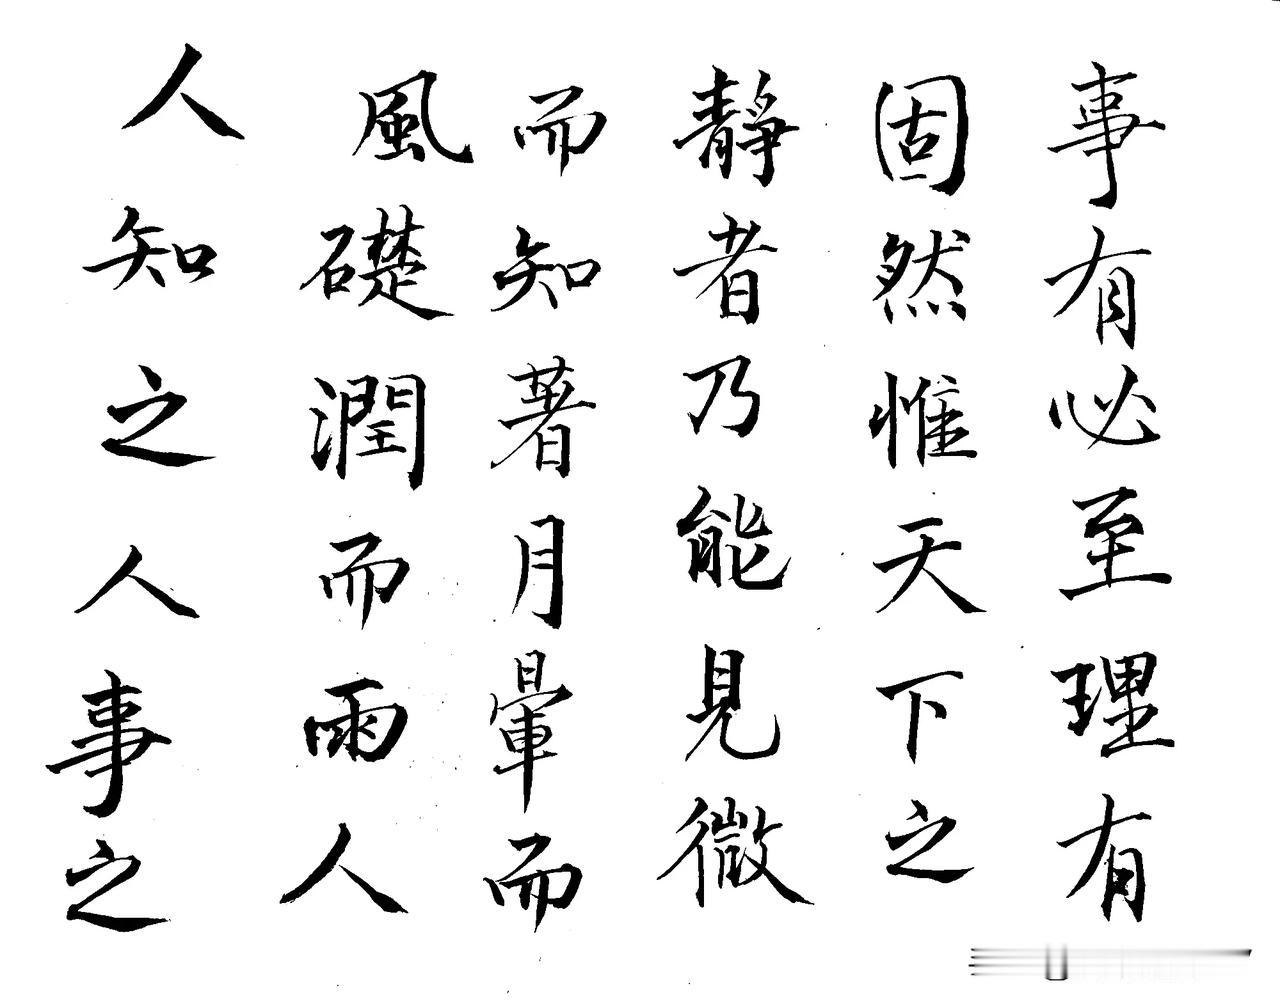 事有必至理有
固然惟天下之
靜者乃能見微
而知著月暈而
風礎潤而雨人
人知之人事之